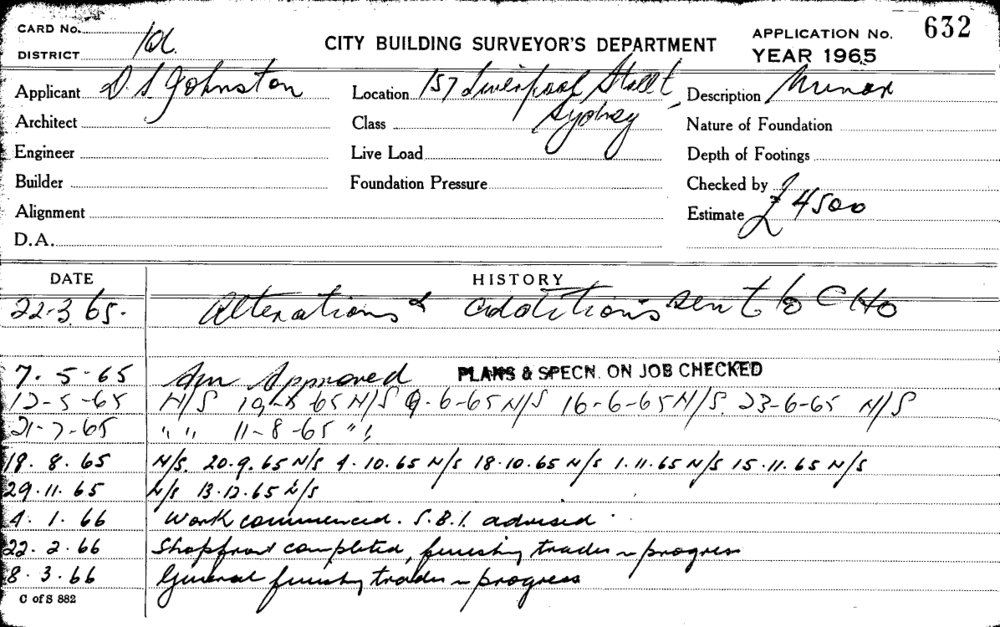 CARD No.
DISTRICT
CITY BUILDING SURVEYOR'S DEPARTMENT
APPLICATION No. 632
YEAR 1965
Applicant D. S. Johnston
Location 157 Liverpool Street, Sydney
Description Minor
Architect
Class
Nature of Foundation
Engineer
Live Load
Depth of Footings
Builder
Foundation Pressure
Checked by
Alignment
Estimate £ 4500
D.A.
DATE HISTORY
22-3.65. Alterations & additions sent to CHO
7.5-65 Approved PLANS & SPECN. ON JOB CHECKED
12-5-65 N/S 65 N/S 9-6-65 N/S 16-6-65 N/S. 23-6-65 N/S
21-7-65 " " 11-8-65 " "
19.8.65 N/S. 20.9.65 N/S 4.10.65 N/S 18.10.65 N/S 1.11.65 N/S 15.11.65 N/S
29.11.65 N/S 13.12.65 N/S
4.1.66 Work commenced. S.B.I. advised
22.2.66 Shopfront completed, finishing trades in progress
8.3.66 General finishing trades in progress
C of S 882